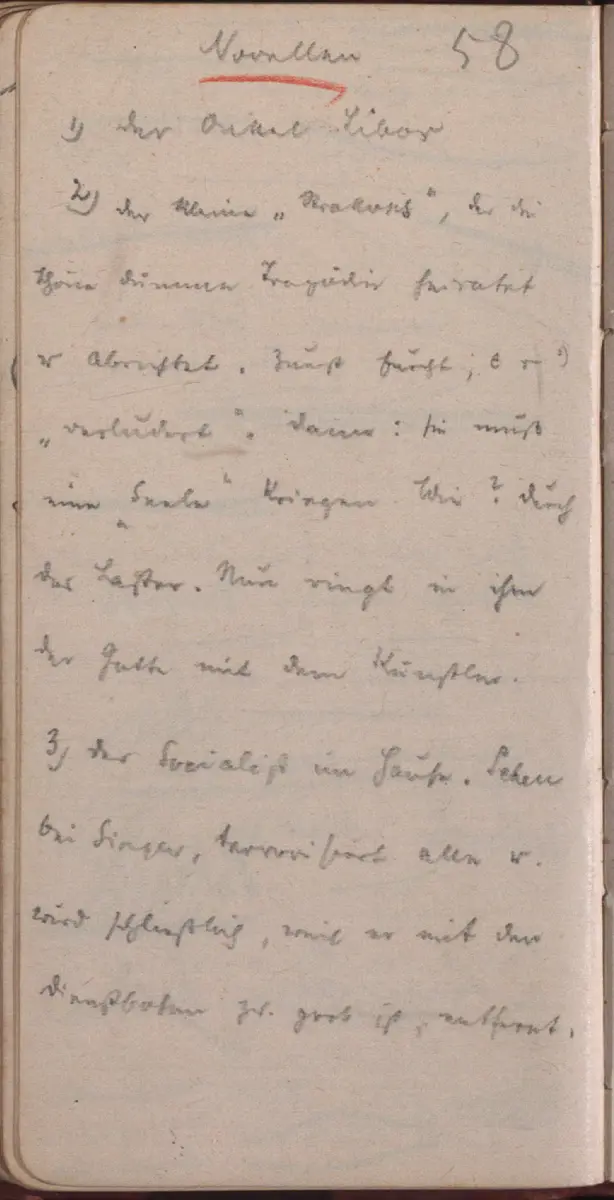 Novellen 58
1) der Onkel Tibor
2) der kleine „Strakosch“, der die
schöne dumme Tragödin heiratet
u abrichtet. Zuerst
„verludert“. Dann: sie muß
eine „Seele“ kriegen. Wie? durch
das Laster. Nun ringt in ihm
der Gatte mit dem Künstler.
3) der Socialist im Hause. Scene
bei Singer, terrorisiert alle u.
wird schließlich, weil er mit den
Dienstboten zu grob ist, entfernt.